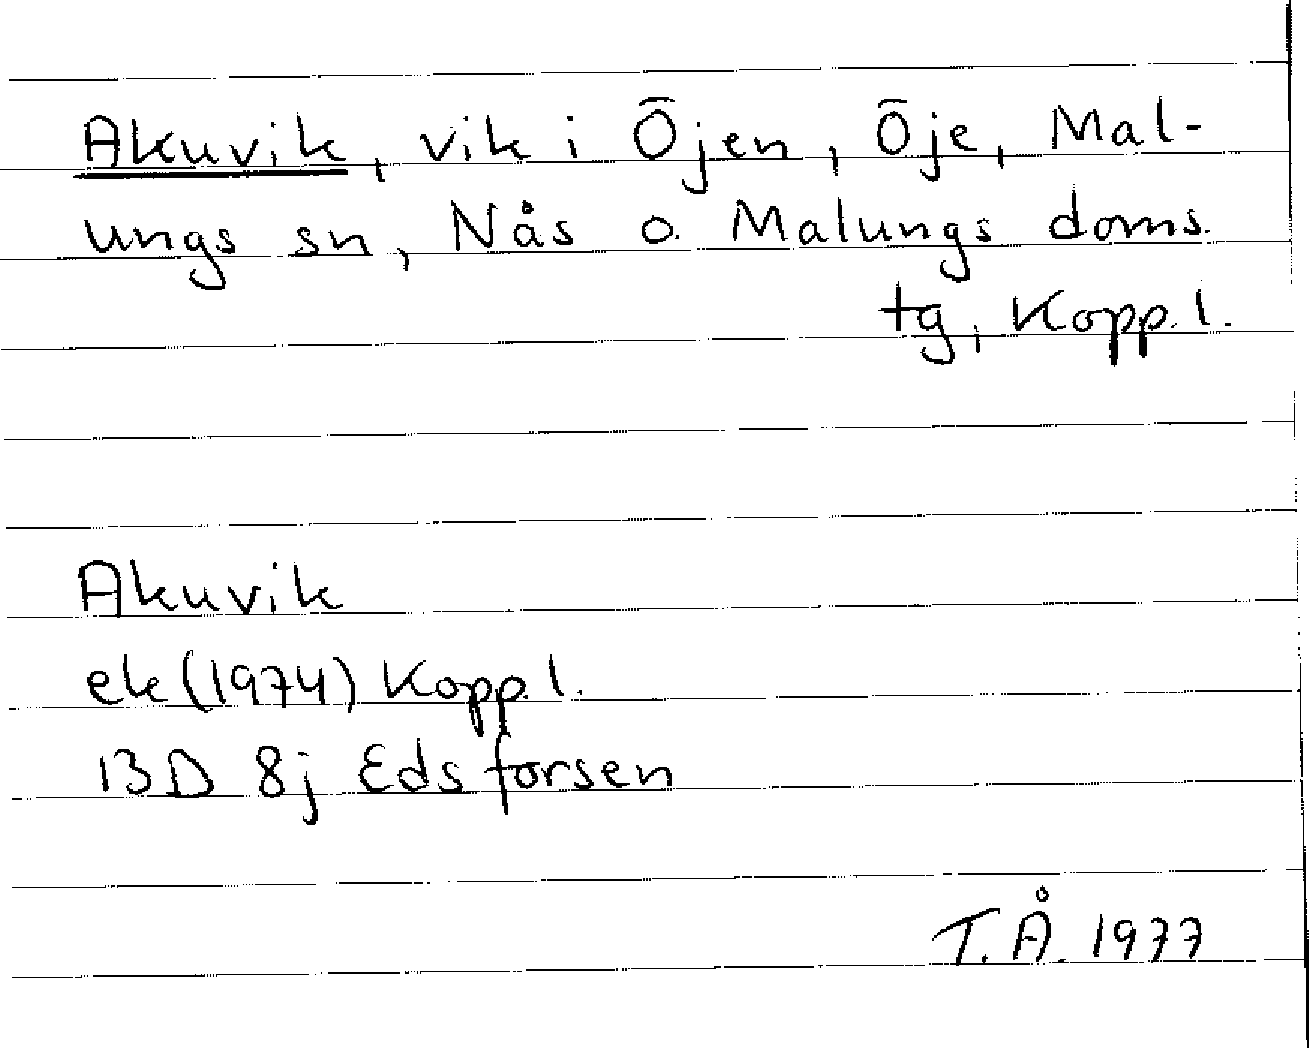 Akuvik, vik i Öjen, Öje, Mal-
ungs sn, Nås o. Malungs doms.
tg, Kopp. l.
Akuvik
ek (1974) Kopp. l.
13D 8j Edsforsen
T.Å. 1977